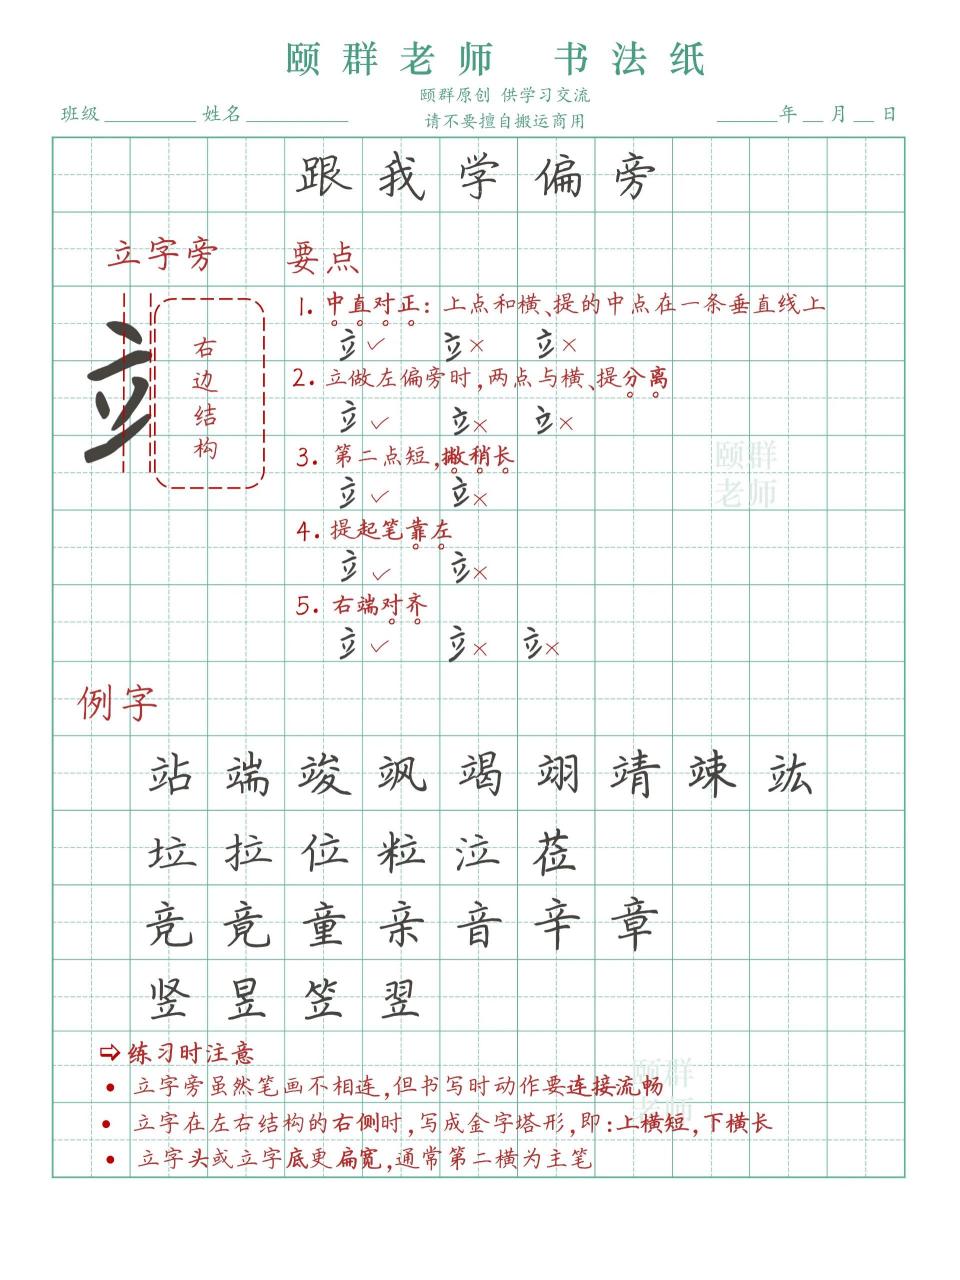 颐群老师 书法纸
颐群原创 供学习交流
请不要擅自搬运商用
班级 姓名 年 月 日
跟我学偏旁
立字旁 要点
立
右边结构
1. 中直对正：上点和横、提的中点在一条垂直线上
立✓ 立× 立×
2. 立做左偏旁时，两点与横、提分离
立✓ 立× 立×
3. 第二点短，撇稍长
立✓ 立×
颐群老师
4. 提起笔靠左
立✓ 立×
5. 右端对齐
立✓ 立× 立×
例字
站端竣飒竭翊靖竦竑
垃拉位粒泣莅
竞竟童亲音辛章
竖昱笠翌
⇨ 练习时注意
• 立字旁虽然笔画不相连，但书写时动作要连接流畅
• 立字在左右结构的右侧时，写成金字塔形，即：上横短，下横长
• 立字头或立字底更扁宽，通常第二横为主笔
颐群老师